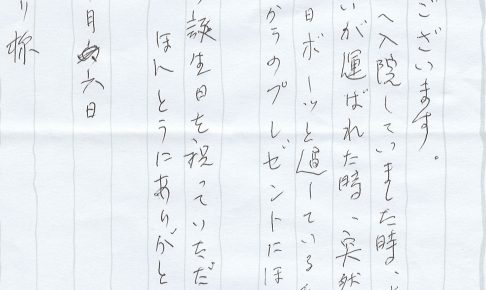 ございます。
へ入院していました時、
いが運ばれた時、突然
日ボーッと過している
からのプレゼントにほ
誕生日を祝っていただ
ほんとうにありがと
月六日
り様